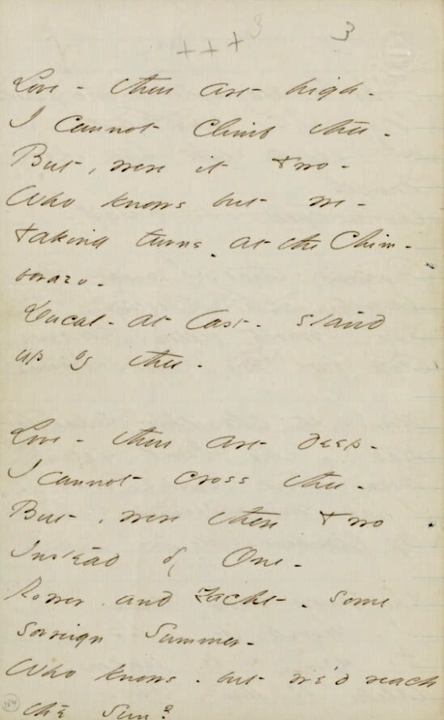 +++ 3 3
Love - thou art high -
I cannot climb thee -
But, were it two -
Who knows but we -
taking turns - at the Chim-
borazo -
Ducal - at last - stand
up by thee -
Love - thou art deep -
I cannot cross thee -
But, were there two
Instead of One -
Rower, and Yacht - some
sovreign Summer -
Who knows - but we'd reach
the Sun?